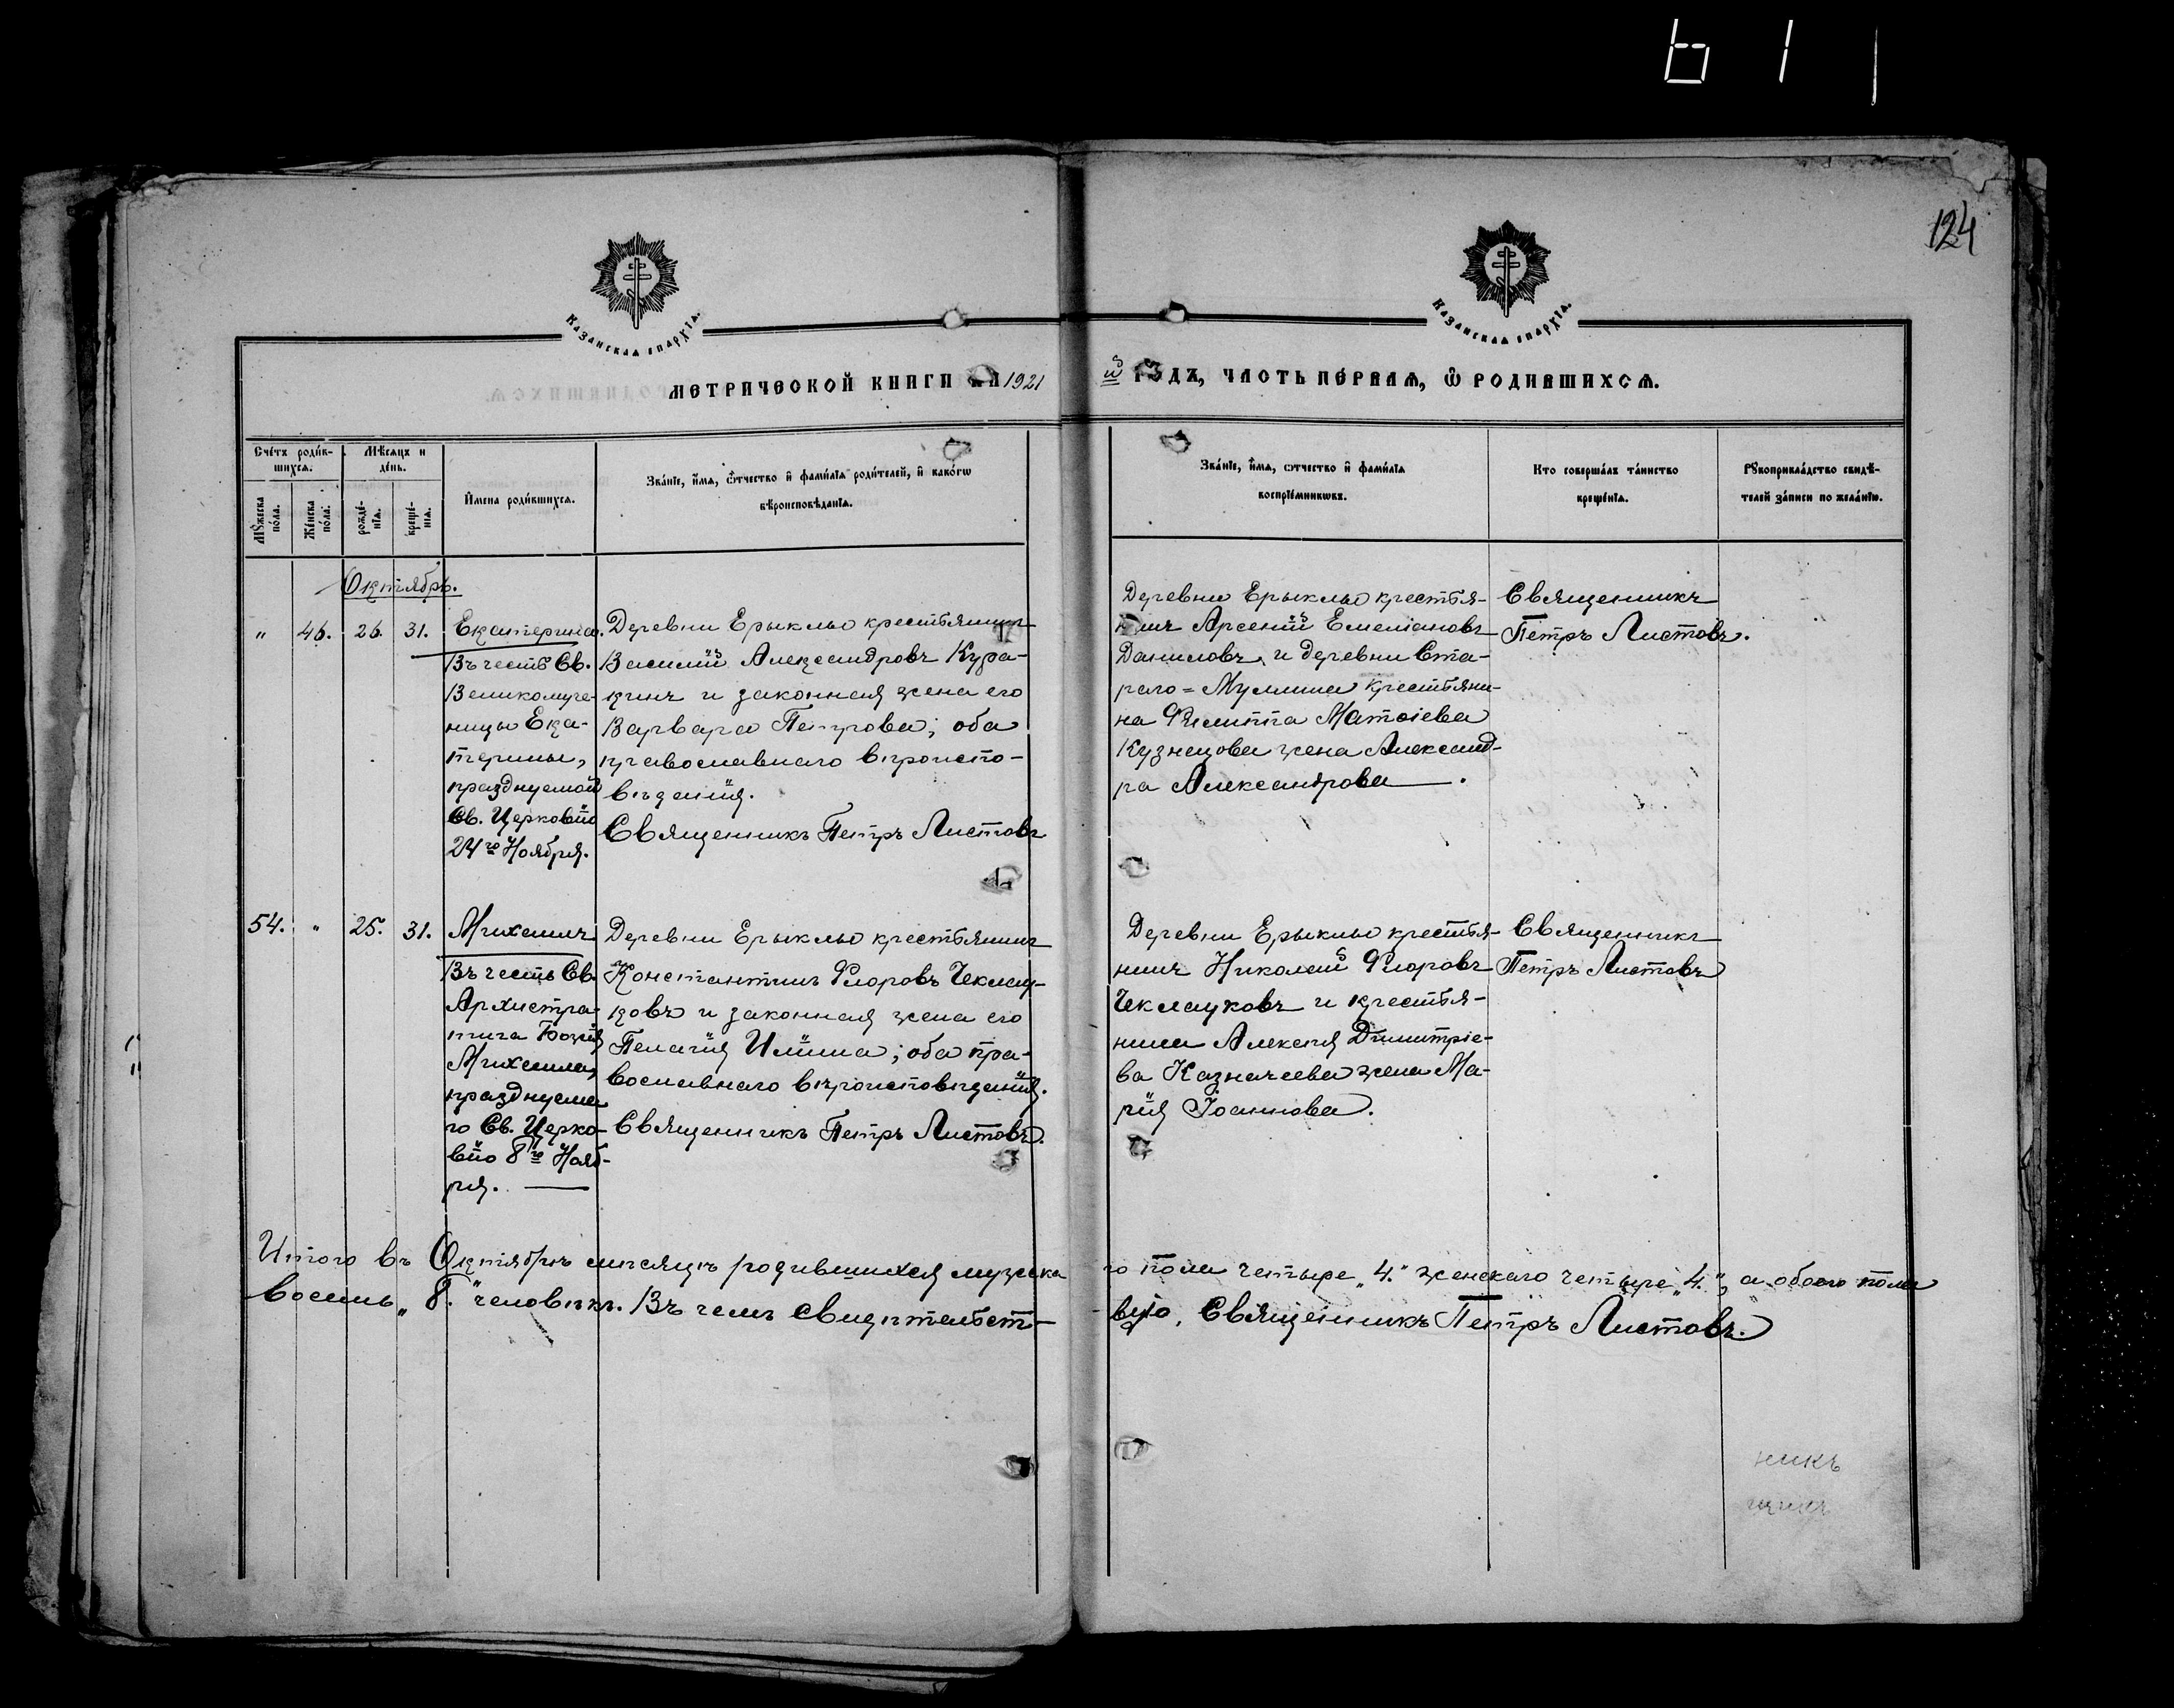 124
Казанская епархїѧ.
Казанская епархїѧ.
МЕТРИЧЕСКОЙ КНИГИ НА 1921
й ГОДЪ, ЧАСТЬ ПЕРВАЯ, Ѡ РОДИВШИХСЯ.
Счетъ родив-
шихся.
Мѣсяцъ и
день.
Мужеска
пола.
Женска
пола.
рожде-
нїя.
креще-
нїя.
Имена родившихся.
Званїе, имя, ѿчество и фамилїя родителей, и какогѡ
вѣроисповѣданїя.
Званїе, имя, ѿчество и фамилїя
воспрїемникѡвъ.
Кто совершалъ таинство
крещенїя.
Рукоприкладство свидѣ-
телей записи по желанїю.
Октябрь.
" 46. 26. 31.
Екатерина.
Въ честь Св.
Великомуче-
ницы Ека-
терины,
празднуемой
Св. Церковїю
24го Ноября.
Деревни Ерыклы крестьянинъ
Василій Александровъ Кура-
кинъ и законная жена его
Варвара Петрова; оба
православнаго вѣроиспо-
вѣданія.
Священникъ Петръ Листовъ
Деревни Ерыклы крестья-
нинъ Арсеній Емеліановъ
Даниловъ и деревни Ста-
раго=Муллина крестьяни-
на Филиппа Матѳіева
Кузнецова жена Александ-
ра Александрова.
Священникъ
Петръ Листовъ.
54. " 25. 31.
Михаилъ
Въ честь Св.
Архистра-
тига Божія
Михаила,
празднуема
го Св. Церко-
вію 8го Нояб-
ря.
Деревни Ерыклы крестьянинъ
Константинъ Флоровъ Чеклау-
ковъ и законная жена его
Пелагія Иліина; оба пра-
вославнаго вѣроисповѣданія.
Священникъ Петръ Листовъ.
Деревни Ерыклы крестья-
нинъ Николай Флоровъ
Чеклауковъ и крестья-
нина Алексія Димитріе-
ва Казначеева жена Ма-
рія Іоаннова.
Священникъ
Петръ Листовъ
Итого въ Октябрѣ мѣсяцѣ родившихся мужска
го пола четыре „4." женскаго четыре „4.", а обоего пола
восемь „8." человѣкъ. Въ чемъ свидѣтельст-
вую, Священникъ Петръ Листовъ.
никъ